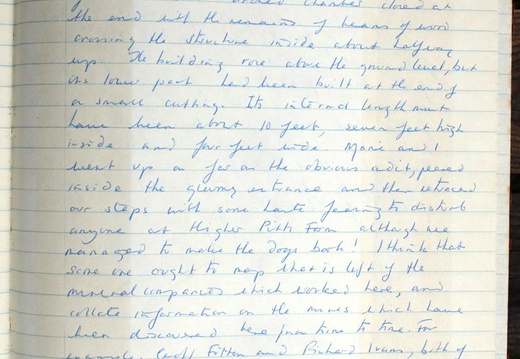 arched chamber closed at
the end with the remains of beams of wood
crossing the structure inside about halfway
up. The building rose above the ground level, but
its lower part had been built at the end of
a small cutting. Its internal length must
have been about 10 feet, seven feet high
inside and four feet wide. Marie and I
went up as far as the obvious adit, peered
inside the gloomy entrance and then retraced
our steps with some haste fearing to disturb
anyone at Higher Pitts Farm although we
managed to make the dogs bark! I think that
some one ought to map what is left of the
mineral companies which worked here, and
collate information on the mines which have
been discovered here from time to time. For
example, Fitton and Richard Evans, both of